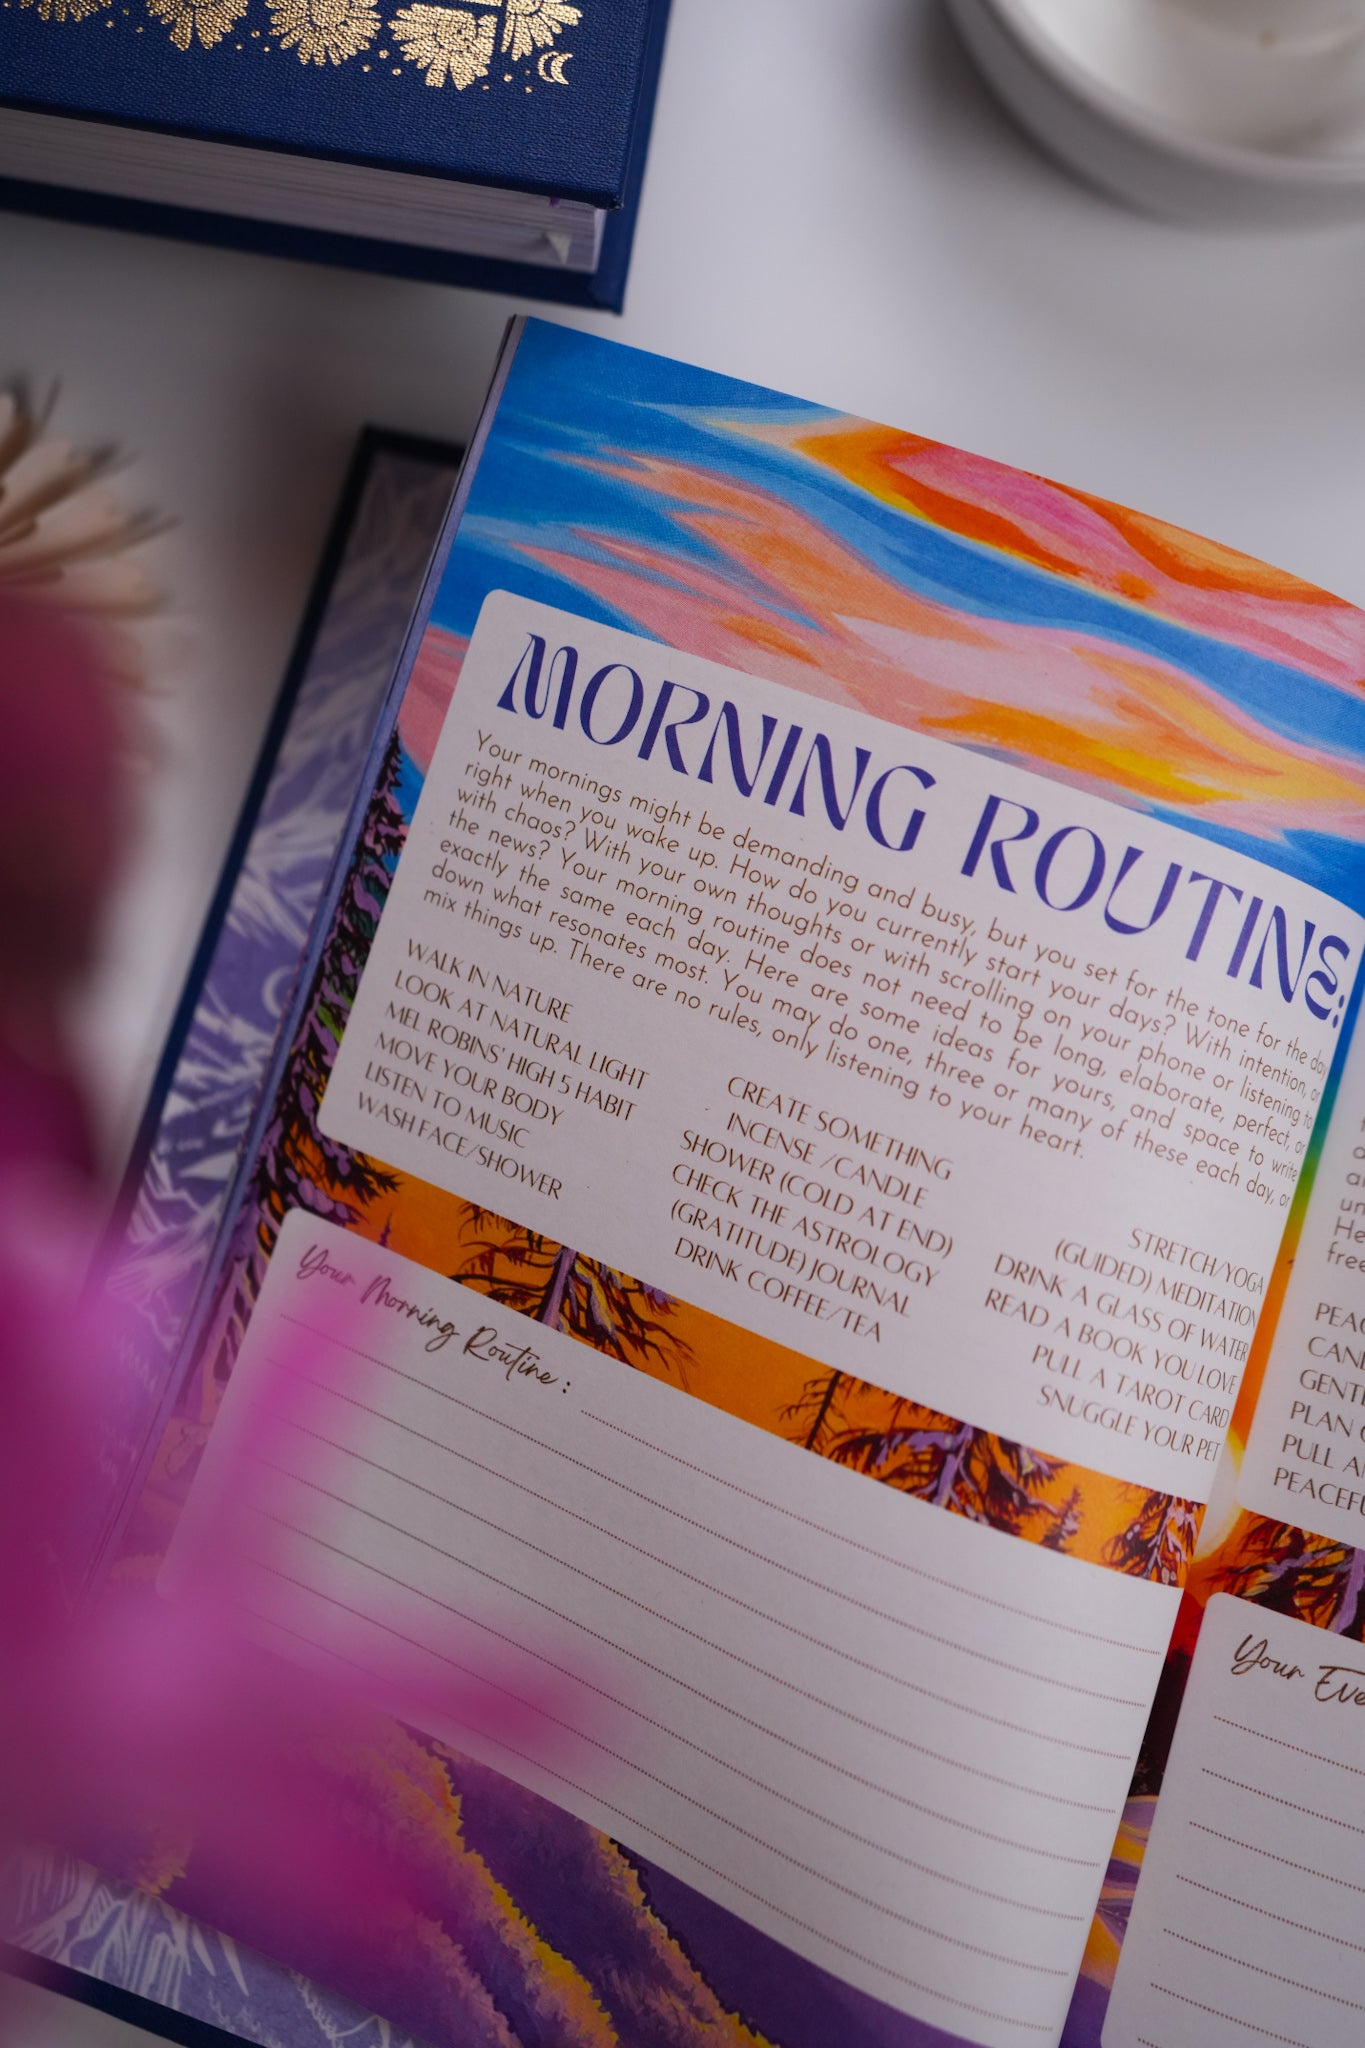 MORNING ROUTINE:
Your mornings might be demanding and busy, but you set for the tone for the day
right when you wake up. How do you currently start your days? With intention, or
with chaos? With your own thoughts or with scrolling on your phone or listening to
the news? Your morning routine does not need to be long, elaborate, perfect, or
exactly the same each day. Here are some ideas for yours, and space to write
down what resonates most. You may do one, three or many of these each day, or
mix things up. There are no rules, only listening to your heart.
WALK IN NATURE
LOOK AT NATURAL LIGHT
MEL ROBINS' HIGH 5 HABIT
MOVE YOUR BODY
LISTEN TO MUSIC
WASH FACE/SHOWER
CREATE SOMETHING
INCENSE /CANDLE
SHOWER (COLD AT END)
CHECK THE ASTROLOGY
(GRATITUDE) JOURNAL
DRINK COFFEE/TEA
STRETCH/YOGA
(GUIDED) MEDITATION
DRINK A GLASS OF WATER
READ A BOOK YOU LOVE
PULL A TAROT CARD
SNUGGLE YOUR PET
Your Morning Routine :
un
He
free
PEAC
CAN
GENT
PLAN
PULL A
PEACEFU
Your Eve